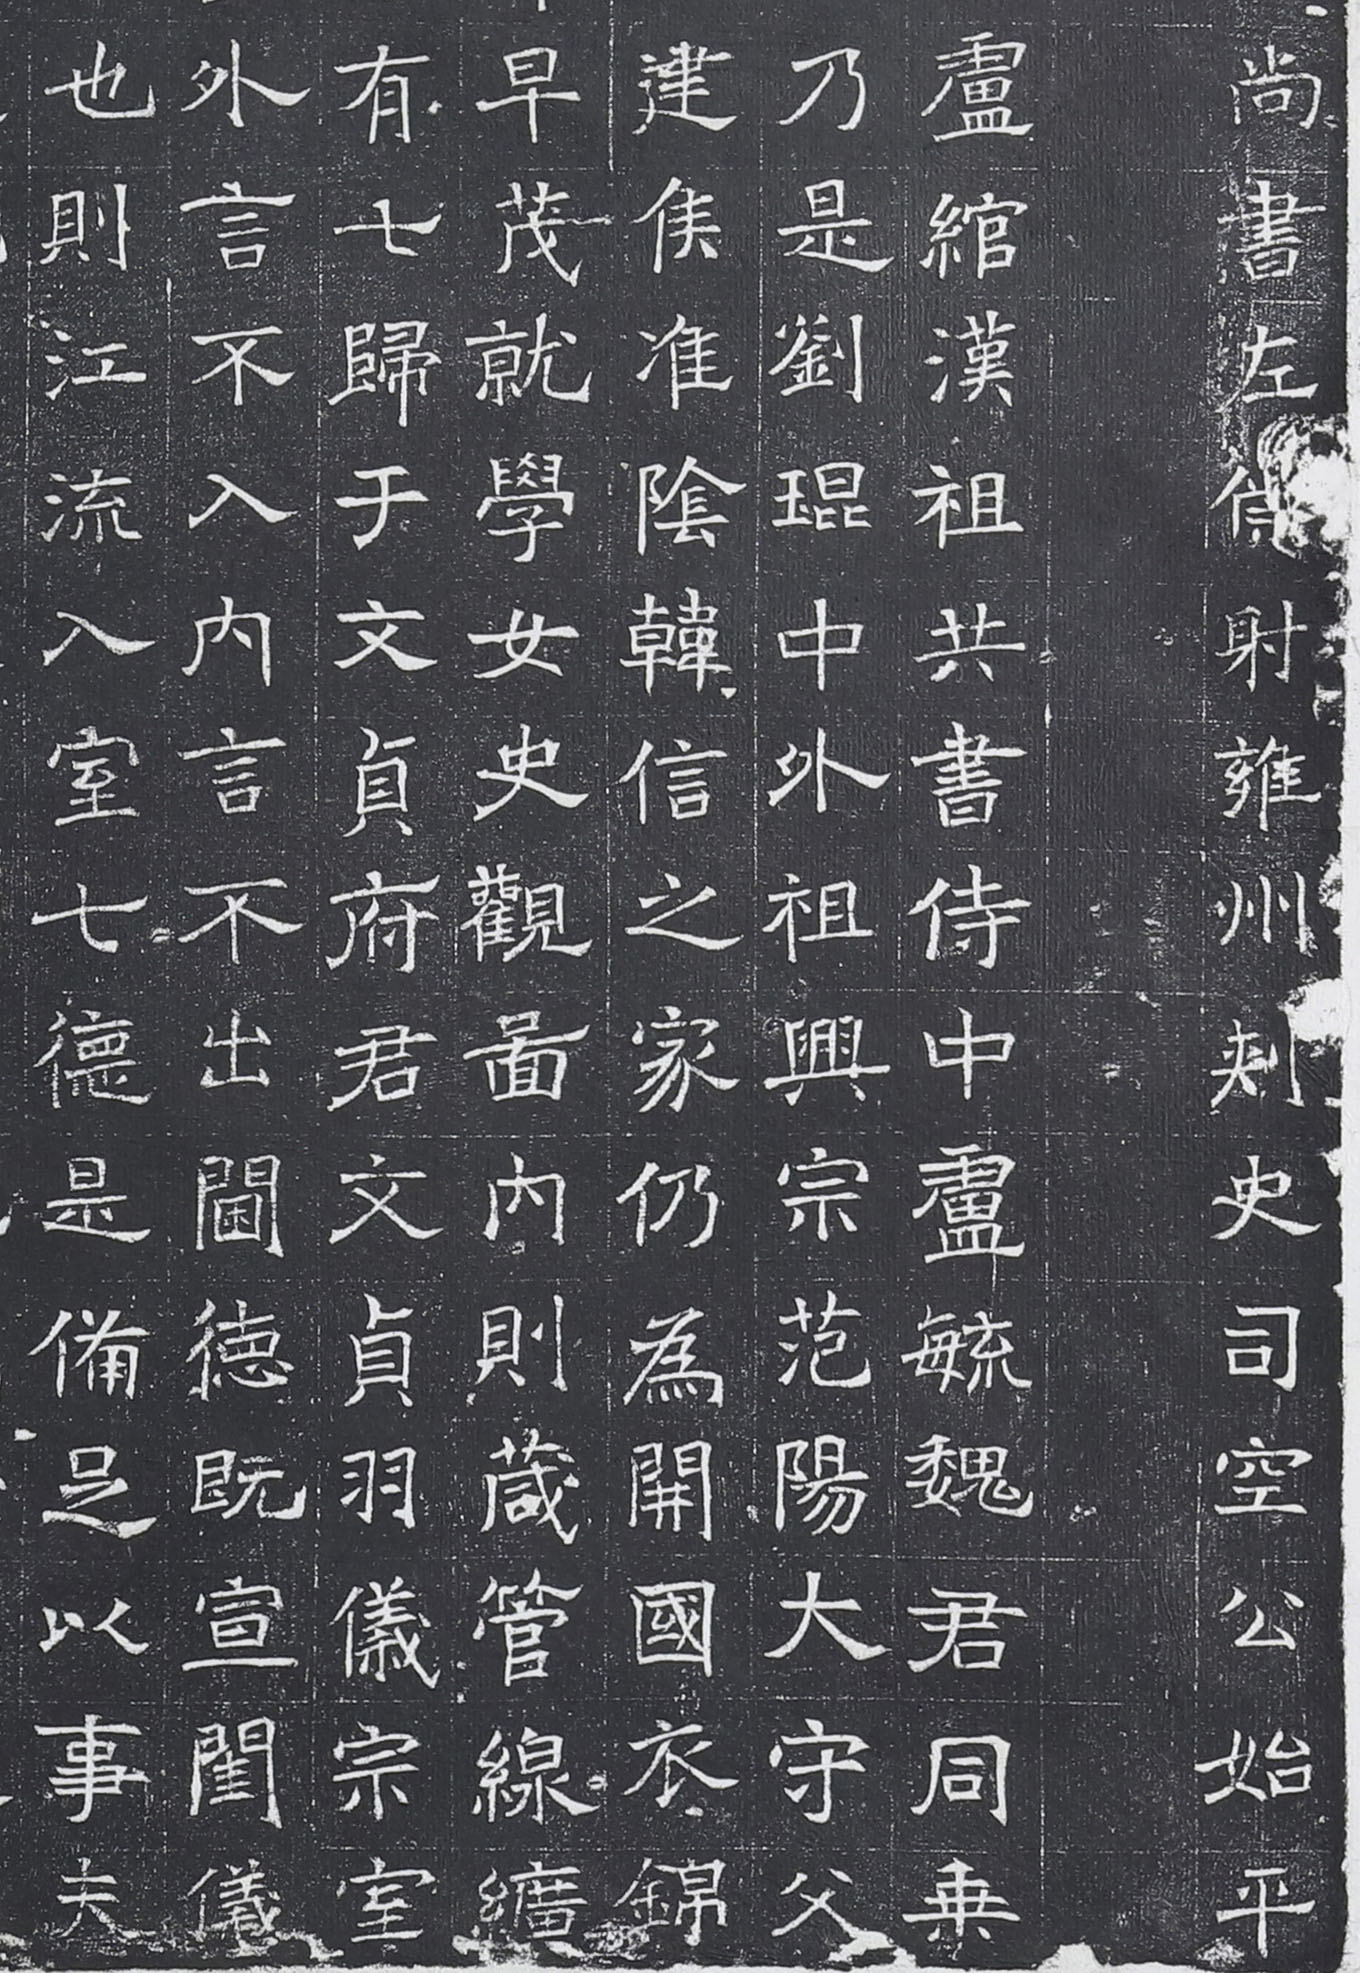 尚書左僕射雍州刾史司空公始平
盧綰漢祖共書侍中盧毓魏君同乗
乃是劉琨中外祖興宗范陽大守父
建隹准陰韓信之家仍為開國衣錦
早茂就學女史觀啚內則葴管線纊
有七歸于文貞府君文貞羽儀宗室
外言不入內言不出閫德既宣閨儀
也則江流入室七德是備足以事夫